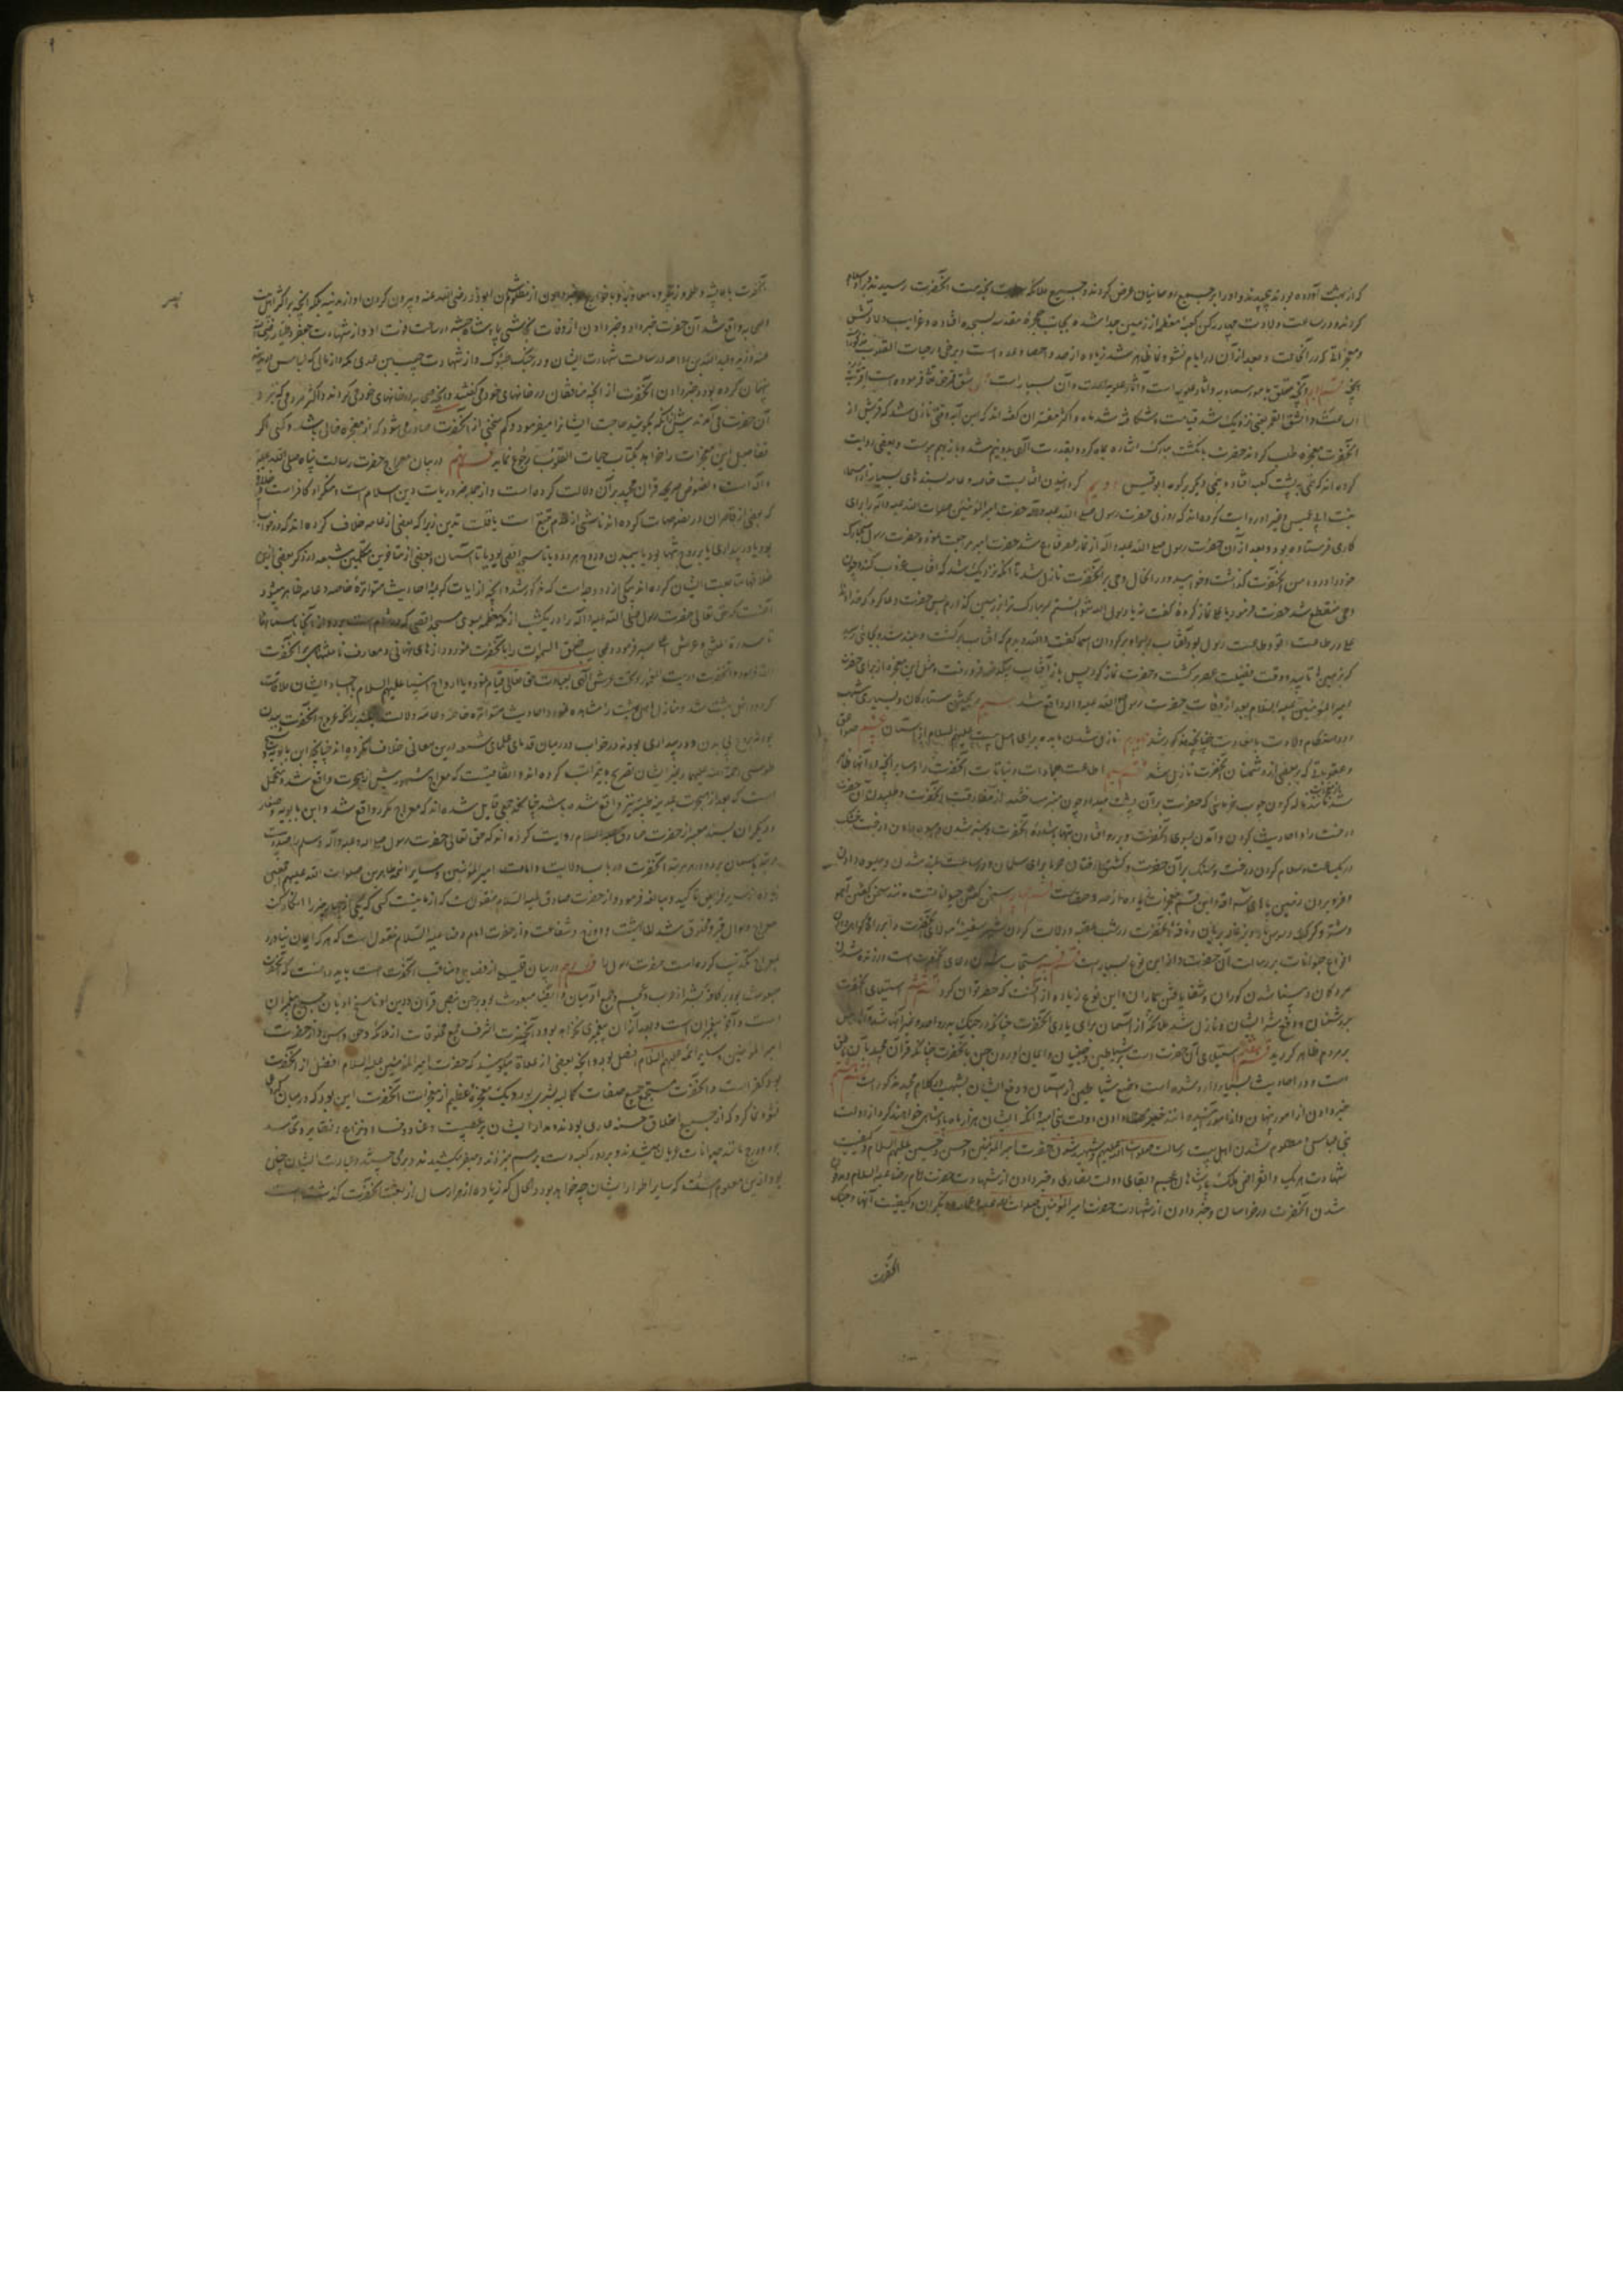 که از بهشت آورده بودند پیچیدند و او را بر جمیع روحانیان عرض کردند و جمیع ملائکه بخدمت آنحضرت رسیدند و بر او سلام
کردند و در ساعت ولادت چهار رکن کعبه معظمه از زمین جدا شده بجانب حجره مقدسه بسجده افتاده و غرایب ولادتش
و معجزاتی که در آنحالت و بعد از آن در ایام نشو و نما ظاهر شد زیاده از حد و احصا و عد است و برخی در حیات القلوب مذکور
آنچه متعلق بامور سماویه و آثار علویه است و آن بسیار است اول شق قمر حق تعالی فرموده است اقتربت
الساعة وانشق القمر یعنی نزدیک شد قیامت و شکافته شد ماه و اکثر مفسران گفته اند که این آیه وقتی نازل شد که قریش از
آنحضرت معجزه طلب کردند حضرت بانگشت مبارک اشاره بماه کرد و بقدرت الهی بدو نیم شد و باز بهم پیوست و بعضی روایت
کرده اند که نیمی بر پشت کعبه افتاد و نیمی دیگر بر کوه ابو قبیس دویم گردانیدن آفتابست خاصه و عامه بسندهای بسیار از اسما
بنت عمیس و غیر او روایت کرده اند که روزی حضرت رسول صلی الله علیه و آله حضرت امیر المؤمنین صلوات الله علیه و آله را برای
کاری فرستاده بود و بعد از آن حضرت رسول صلی الله علیه و آله از نماز عصر فارغ شد حضرت امیر مراجعت نمود و حضرت رسول سر مبارک
خود را در دامن آنحضرت گذاشت و خوابید و در آنحال وحی بر آنحضرت نازل شد تا آنکه نزدیک شد که آفتاب غروب کند و چون
وحی منقطع شد حضرت فرمود یا علی نماز کرده گفت نه یا رسول الله نتوانستم سر مبارک ترا بر زمین گذارم پس حضرت دعا کرد که خداوندا
علی در طاعت تو و طاعت رسول تو بود آفتاب را برای او برگردان اسما گفت والله دیدم که آفتاب برگشت و بلند شد و بجائی رسید
که بر زمینها تابید و وقت فضیلت عصر برگشت و حضرت نماز کرد پس باز آفتاب بیکدفعه فرو رفت و مثل این معجزه از برای حضرت
امیر المؤمنین علیه السلام بعد از وفات حضرت رسول صلی الله علیه و آله واقع شد سیم ریختن ستارگان و بسیاری شهب
در هنگام ولادت با سعادت چنانچه مذکور شد چهارم نازل شدن مایده برای اهل بیت علیهم السلام از آسمان
و عقوبتی که بر بعضی از دشمنان آنحضرت نازل شد قسم سیم اطاعت جمادات و نباتات آنحضرت را و سایر آنچه در آنها ظاهر
شد مانند ناله کردن چوب خرمائی که حضرت بر آن پشت میداد چون منبر ساختند از مفارقت آنحضرت و طلبیدن آن حضرت
درخت را و آمدن بسوی آنحضرت و بر رو افتادن بتها باشاره آنحضرت و سبز شدن و میوه دادن درخت خشک
در یکساعت و سلام کردن درخت و سنگ بر آن حضرت و کشتن درختان خرما برای سلمان و در ساعت بلند شدن و میوه دادن
و فرو بردن زمین پاهای سراقه و این قسم معجزات زیاده از حد و احصاست قسم چهارم سخن گفتن حیوانات است مانند سخن گفتن آهو
و شتر و گرگ و سوسمار و بزغاله بریان و ناقه آنحضرت در شب عقبه و دلالت کردن شیر سفینه مولای آنحضرت را بر راه و گواهی دادن
انواع حیوانات بر رسالت آن حضرت و از این نوع بسیار است قسم پنجم مستجاب شدن دعای آنحضرت است در زنده شدن
مردگان و بینا شدن کوران و شفا یافتن بیماران و این نوع زیاده از آنست که حصر توان کرد قسم ششم استیلای آنحضرت
بر دشمنان و دفع شر ایشان و نازل شدن ملائکه از آسمان برای یاری آنحضرت چنانکه در جنک بدر و احد و غیر آن شد
بر مردم ظاهر گردید قسم هفتم استیلای آن حضرت است بر شیاطین و جنیان و ایمان آوردن جن بآنحضرت چنانکه قرآن مجید بآن ناطق
است و در احادیث بسیار وارد شده است و منع شیاطین از آسمان و دفع ایشان بشهب در کلام مجید مذکور است قسم هشتم
خبر دادن از امور پنهان و از امور آینده مانند خبر دادن دولت بنی امیه و آنکه ایشان هزار ماه پادشاهی خواهند کرد و از دولت
بنی عباس و مظلوم شدن اهل بیت رسالت صلوات الله علیهم و شهید شدن حضرت امیر المؤمنین و حسن و حسین علیهم السلام و کیفیت
شهادت هر یک و انقراض ملک پادشاهان عجم و بقای دولت نصاری و خبر دادن از شهادت حضرت امام رضا علیه السلام و مدفون
شدن آنحضرت در خراسان و خبر دادن از شهادت حضرت امیر المؤمنین صلوات الله علیه و عمار و دیگران و کیفیت آنها و جنک
آنحضرت
آنحضرت با عایشه و طلحه و زبیر و معاویه و با خوارج و خبر دادن از مظلوم شدن ابوذر رضی الله عنه و بیرون کردن او از مدینه بلکه آنچه بر اکثر اهل بیت
و اصحابه واقع شد آن حضرت خبر داد و خبر دادن از وفات نجاشی پادشاه حبشه در ساعت فوت او و از شهادت جعفر طیار رضی الله
عنه و زید و عبد الله بن رواحه در ساعت شهادت ایشان و در جنک تبوک و از شهادت حبیب بن عدی بمکه و از مالی که عباس در مکه
پنهان کرده بود و خبر دادن آنحضرت از آنچه منافقان در خانهای خود میگفتند و آنچه مردم در خانهای خود میکردند و اکثر مردمی که نزد
آن حضرت می آمدند پیش از آنکه بگویند حاجت ایشانرا میفرمود و کم سخنی از آنحضرت صادر میشود که از معجزه خالی باشد و کسی اگر
تفاصیل این معجزات را خواهد بکتاب حیات القلوب رجوع نماید فصل نهم در بیان معراج حضرت رسالت پناه صلی الله علیه
و آله است و بنصوص صریحه قرآن مجید بر آن دلالت کرده است و از جمله ضروریات دین اسلام است و منکر او کافر است
که بعضی از قاصران در خصوصیات کرده اند ناشی از عدم تتبع است یا قلت تدین زیرا که بعضی از عامه خلاف کرده اند که در خواب
بود یا در بیداری یا بروح تنها بود یا ببدن و روح هر دو و یا تا مسجد اقصی بود یا تا آسمان و بعضی از متأخرین متکلمین شیعه در ذکر بعضی از این
خلافها متابعت ایشان کرده اند بیکی از دو وجه است که مذکور شد و آنچه از آیات کریمه و احادیث متواتره خاصه و عامه ظاهر میشود
آنست که حق تعالی حضرت رسول صلی الله علیه و آله را در یکشب از مکه معظمه بسوی مسجد اقصی که در شام است برد و از آنجا بآسمانها
تا سدرة المنتهی و عرش اعلا سیر فرمود و عجایب خلق السموات را بآنحضرت نمود و رازهای نهانی و معارف نامتناهی بآنحضرت
القا فرمود و آنحضرت در بیت المعمور و تحت عرش الهی بعبادت حق تعالی قیام نمود و با ارواح انبیا علیهم السلام با اجساد ایشان ملاقات
کرد و داخل بهشت شد و منازل اهل بهشت را مشاهده نمود و احادیث متواتره خاصه و عامه دلالت میکند بر آنکه عروج آنحضرت ببدن
بود نه بروح بی بدن و در بیداری بود نه در خواب و در میان قدمای علمای شیعه در این معانی خلاف نکرده اند چنانچه ابن بابویه و شیخ
طوسی رحمة الله علیهما و غیر ایشان تصریح باین مراتب کرده اند و اتفاقیست که معراج مشهور پیش از هجرت واقع شد و محتمل
است که بعد از هجرت بمدینه طیبه نیز واقع شده باشد چنانچه جمعی قایل شده اند که معراج مکرر واقع شد و ابن بابویه و صفار
و دیگران بسند معتبر از حضرت صادق علیه السلام روایت کرده اند که حق تعالی حضرت رسول صلی الله علیه و آله و سلم را صد و بیست
مرتبه بآسمان برد و در هر مرتبه آنحضرت در باب ولایت و امامت امیر المؤمنین و سایر ائمه طاهرین صلوات الله علیهم اجمعین
زیاده از سایر فرایض تأکید و مبالغه فرمود و از حضرت صادق علیه السلام منقول است که از ما نیست کسی که یکی از چهار چیز را انکار کند
معراج و سؤال قبر و مخلوق شدن بهشت و دوزخ و شفاعت و از حضرت امام رضا علیه السلام منقول است که هر که ایمان نیاورد
بمعراج تکذیب کرده است حضرت رسول را فصل دهم در بیان قلیلی از فضایل و مناقب آنحضرت است باید دانست که آنحضرت
مبعوث بود بر کافه بشر از عرب و عجم و جمیع آدمیان و ایضا مبعوث بود بر جن بنص قرآن و دین او ناسخ ادیان جمیع پیغمبران
است و آخر پیغمبران است و بعد از آن پیغمبری نخواهد بود و آنحضرت اشرف جمیع مخلوقات از ملائکه و جن و انس و از حضرت
امیر المؤمنین و سایر ائمه علیهم السلام افضل بود و آنچه بعضی از غلاة میگویند که حضرت امیر المؤمنین علیه السلام افضل از آنحضرت
بود کفر است و آنحضرت مستجمع جمیع صفات کمالیه بشری بود و یک معجزه عظیم از معجزات آنحضرت این بود که در میان گروهی
نشو و نما کرد که از جمیع اخلاق حسنه عاری بودند و مدار ایشان بر عصبیت و عناد و فساد و نزاع و تغایر و تحاسد
بود و در حج مانند حیوانات عریان میشدند و بر دور کعبه دست بر هم میزدند و صفیر میکشیدند و بر می جستند و عبادت ایشان چنین
بود از این معلوم است که سایر اطوار ایشان چه خواهد بود و الحال که زیاده از هزار سال از بعثت آنحضرت گذشته است